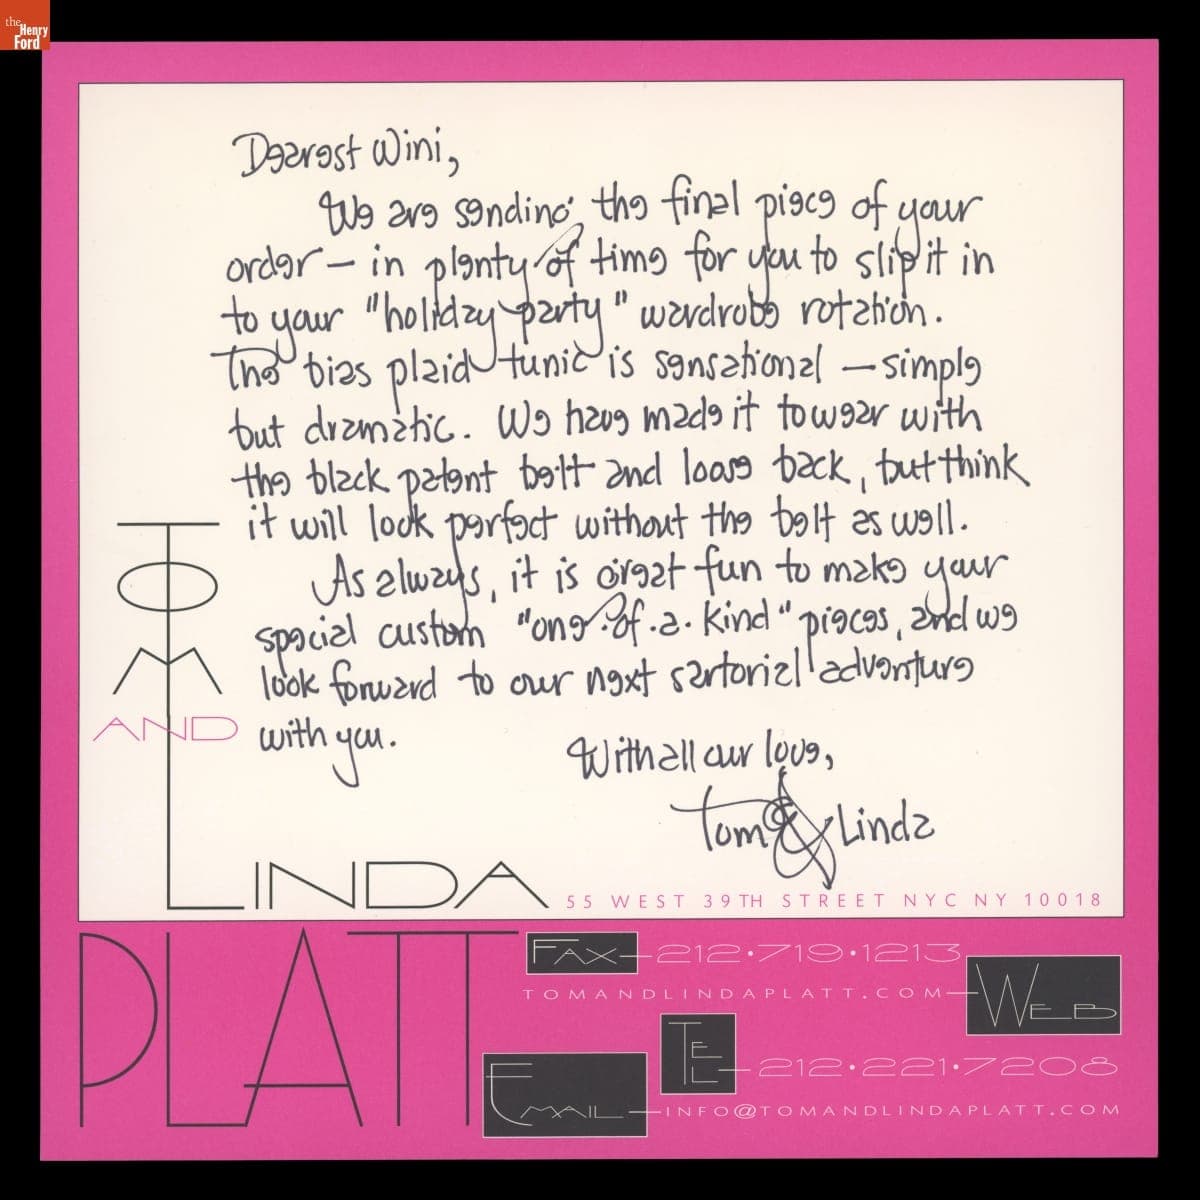 the
Henry
Ford
Dearest Wini,
We are sending the final piece of your
order – in plenty of time for you to slip it in
to your "holiday party" wardrobe rotation.
The bias plaid tunic is sensational – simple
but dramatic. We have made it to wear with
the black patent belt and loose back, but think
it will look perfect without the belt as well.
As always, it is great fun to make your
special custom "one.of.a.kind" pieces, and we
look forward to our next sartorial adventure
with you.
With all our love,
Tom & Linda
TOM
AND
LINDA
55 WEST 39TH STREET NYC NY 10018
PLATT
FAX 212•719•1213
TOMANDLINDAPLATT.COM WEB
TEL 212•221•7208
EMAIL INFO@TOMANDLINDAPLATT.COM